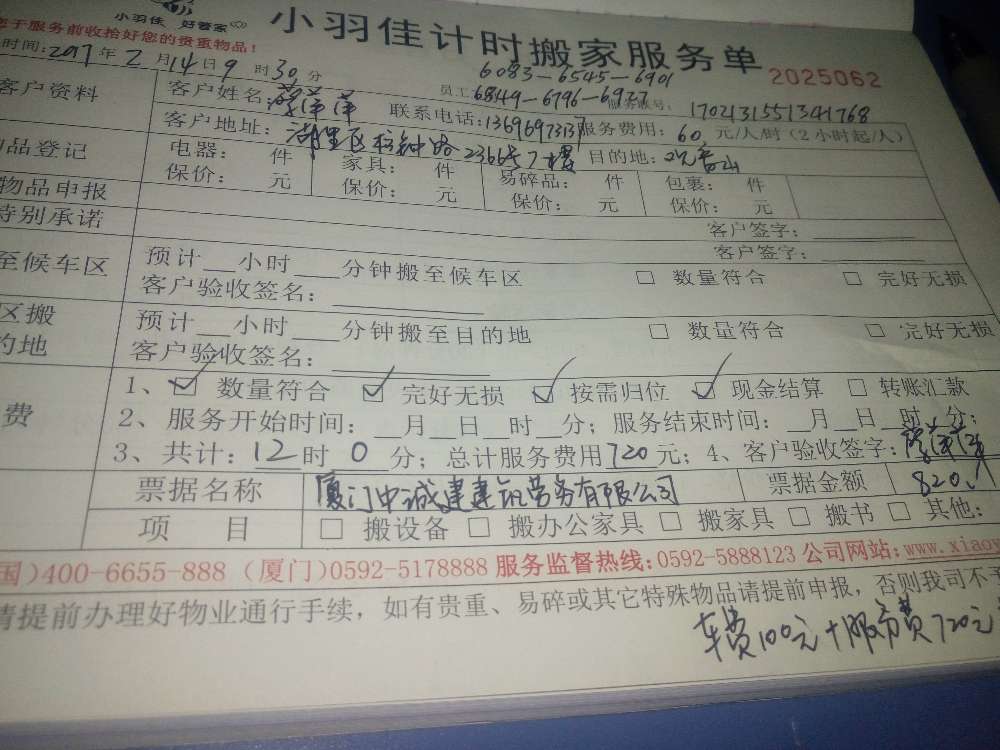 小羽佳 好管家
小羽佳计时搬家服务单
2025062
您于服务前收拾好您的贵重物品!
时间:2017年2月14日9时30分
员工 6083-6545-6901
6849-6796-6927 服务账号: 1702131551341768
客户资料 客户姓名: 萍萍 联系电话:13696973137 服务费用: 60元/人/时(2小时起/人)
客户地址: 湖里区枋钟路2366号7楼 目的地:观音山
品登记 电器: 件 家具: 件 易碎品: 件 包裹: 件
保价: 元 保价: 元 保价: 元 保价: 元
物品申报 客户签字:
特别承诺 客户签字:
至候车区 预计__小时__分钟搬至候车区 □ 数量符合 □ 完好无损
客户验收签名:
区搬 预计__小时__分钟搬至目的地 □ 数量符合 □ 完好无损
的地 客户验收签名:
费 1、☑ 数量符合 ☑ 完好无损 ☑ 按需归位 ☑ 现金结算 □ 转账汇款
2、服务开始时间:__月__日__时__分;服务结束时间:__月__日__时__分;
3、共计:12时0分;总计服务费用720元;4、客户验收签字:
票据名称 厦门中诚建建筑劳务有限公司 票据金额 820
项目 □ 搬设备 □ 搬办公家具 □ 搬家具 □ 搬书 □ 其他:
国)400-6655-888 (厦门)0592-5178888 服务监督热线:0592-5888123 公司网站:www.xiaoy
请提前办理好物业通行手续,如有贵重、易碎或其它特殊物品请提前申报,否则我司不予
车费100元+服务费720元